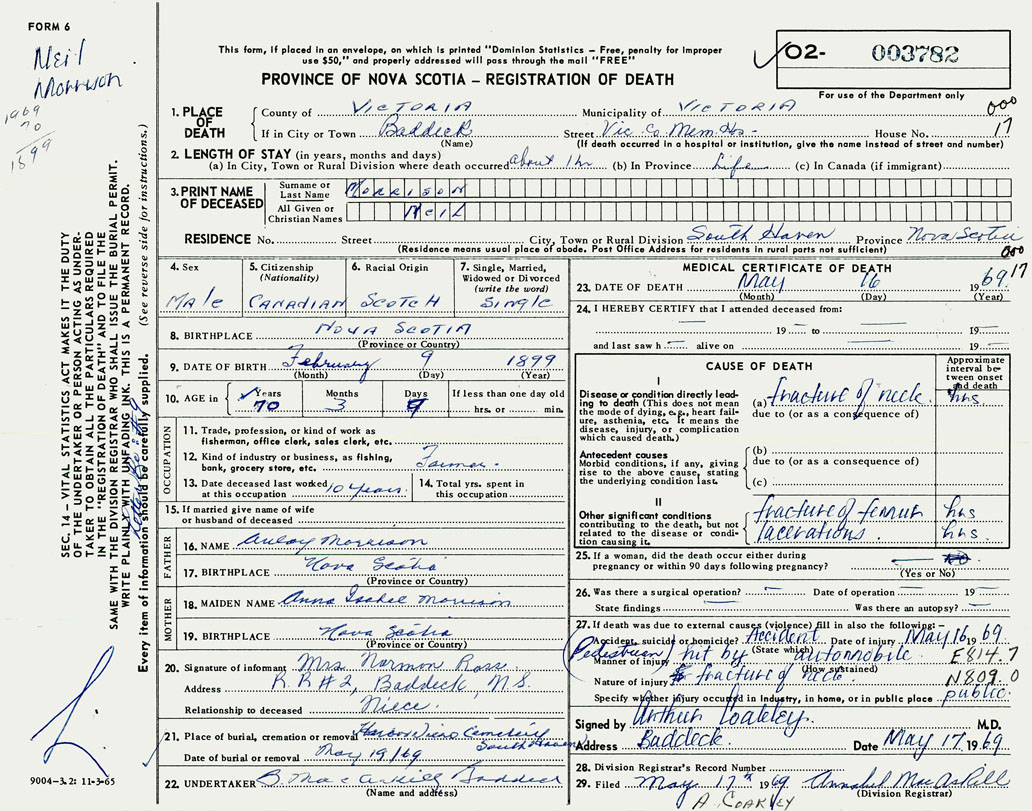 FORM 6
Neil
Morrison
1969
70
1899
This form, if placed in an envelope, on which is printed "Dominion Statistics – Free, penalty for improper
use $50," and properly addressed will pass through the mail "FREE"
PROVINCE OF NOVA SCOTIA – REGISTRATION OF DEATH
O2- 003782
For use of the Department only
1. PLACE OF DEATH
County of VICTORIA Municipality of VICTORIA 000
If in City or Town Baddeck Street Vic. Co. Mem. Hos- House No. 17
(Name) (If death occurred in a hospital or institution, give the name instead of street and number)
2. LENGTH OF STAY (in years, months and days)
(a) In City, Town or Rural Division where death occurred about 1 hr (b) In Province Life (c) In Canada (if immigrant)
3. PRINT NAME OF DECEASED
Surname or Last Name MORRISON
All Given or Christian Names NEIL
RESIDENCE No. Street City, Town or Rural Division South Haven Province Nova Scotia
(Residence means usual place of abode. Post Office Address for residents in rural parts not sufficient)
000
17
4. Sex
Male
5. Citizenship (Nationality)
CANADIAN
6. Racial Origin
SCOTCH
7. Single, Married, Widowed or Divorced (write the word)
Single
8. BIRTHPLACE NOVA SCOTIA
(Province or Country)
9. DATE OF BIRTH February 9 1899
(Month) (Day) (Year)
10. AGE in Years Months Days If less than one day old
70 3 9 hrs. or min.
OCCUPATION
11. Trade, profession, or kind of work as
fisherman, office clerk, sales clerk, etc.
12. Kind of industry or business, as fishing,
bank, grocery store, etc. Farmer.
13. Date deceased last worked
at this occupation 10 years.
14. Total yrs. spent in
this occupation
15. If married give name of wife
or husband of deceased
FATHER
16. NAME Auloy Morrison
17. BIRTHPLACE Nova Scotia
(Province or Country)
MOTHER
18. MAIDEN NAME Anna Isabel Morrison
19. BIRTHPLACE Nova Scotia
(Province or Country)
20. Signature of informant Mrs. Norman Ross
Address R.R#2, Baddeck, N.S.
Relationship to deceased Niece.
21. Place of burial, cremation or removal Harbor View Cemetery
South Haven
Date of burial or removal May 19/69
22. UNDERTAKER B. MacAskill Baddeck
(Name and address)
MEDICAL CERTIFICATE OF DEATH
23. DATE OF DEATH May 16 1969
(Month) (Day) (Year)
24. I HEREBY CERTIFY that I attended deceased from:
19 to 19
and last saw h alive on 19
CAUSE OF DEATH
Approximate interval between onset and death
I
Disease or condition directly leading to death (This does not mean the mode of dying, e.g., heart failure, asthenia, etc. It means the disease, injury, or complication which caused death.)
(a) fracture of neck. hrs
due to (or as a consequence of)
Antecedent causes
Morbid conditions, if any, giving rise to the above cause, stating the underlying condition last.
(b)
due to (or as a consequence of)
(c)
II
Other significant conditions contributing to the death, but not related to the disease or condition causing it.
fracture of femur hrs
lacerations. hrs.
25. If a woman, did the death occur either during
pregnancy or within 90 days following pregnancy?
(Yes or No)
26. Was there a surgical operation? Date of operation 19
State findings Was there an autopsy?
27. If death was due to external causes (violence) fill in also the following:–
Accident, suicide or homicide? Accident Date of injury May 16 1969
(State which)
(Pedestrian) Manner of injury hit by automobile. E814.7
(How sustained)
Nature of injury fracture of neck. N809.0
Specify whether injury occurred in industry, in home, or in public place public.
Signed by Arthur Coakley. M.D.
Address Baddeck. Date May 17 1969
28. Division Registrar's Record Number
29. Filed May 17th 1969 Annabel MacAskill
(Division Registrar)
A. COAKLEY
SEC. 14 – VITAL STATISTICS ACT MAKES IT THE DUTY
OF THE UNDERTAKER OR PERSON ACTING AS UNDER-
TAKER TO OBTAIN ALL THE PARTICULARS REQUIRED
IN THE "REGISTRATION OF DEATH" AND TO FILE THE
SAME WITH THE DIVISION REGISTRAR WHO SHALL ISSUE THE BURIAL PERMIT.
WRITE PLAINLY WITH UNFADING INK. THIS IS A PERMANENT RECORD.
Every item of information should be carefully supplied. (See reverse side for instructions.)
9004-3.2: 11-3-65